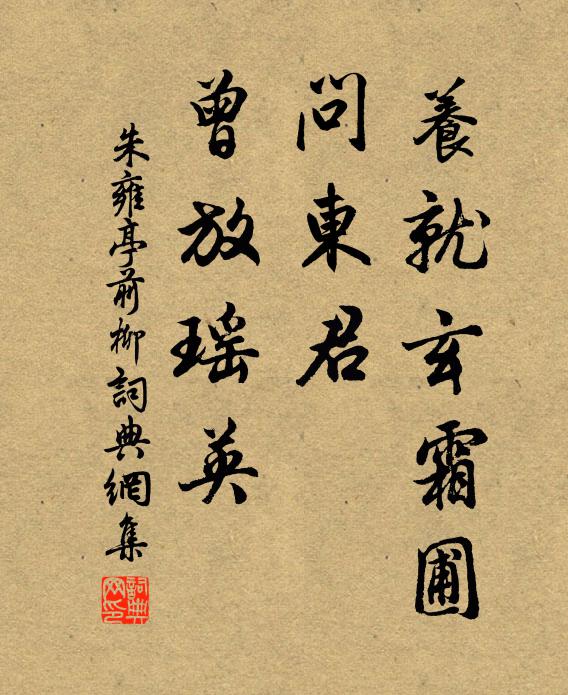 養就玄霜圃
問東君
曾放瑶英
朱雍亭前柳詞典網集
詞典网印